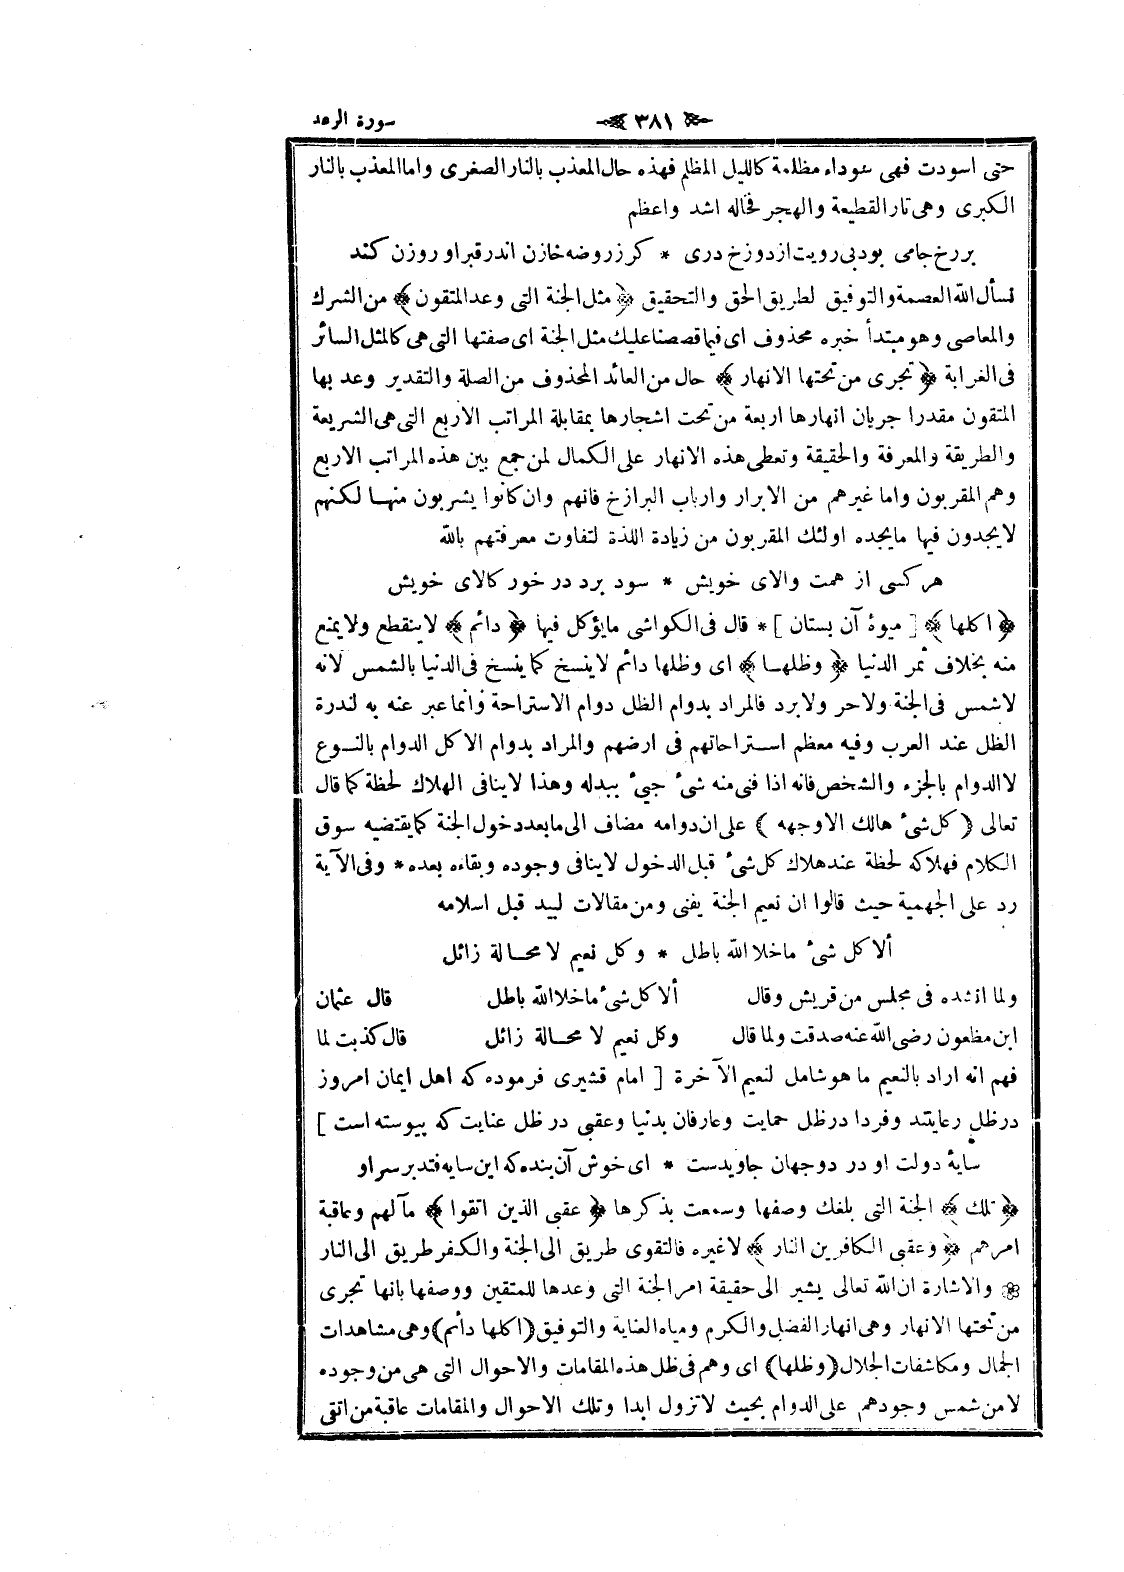 سورة الرعد ﴿ ٣٨١ ﴾
حتى اسودت فهى سوداء مظلمة كالليل المظلم فهذه حال المعذب بالنار الصغرى واما المعذب بالنار
الكبرى وهى نار القطيعة والهجر فحاله اشد واعظم
بررخ جامى بود بى رويت از دوزخ درى * كر زروضه خازن اندر قبر او روزن كند
نسأل الله العصمة والتوفيق لطريق الحق والتحقيق ﴿ مثل الجنة التى وعد المتقون ﴾ من الشرك
والمعاصى وهو مبتدأ خبره محذوف اى فيما قصصنا عليك مثل الجنة اى صفتها التى هى كالمثل السائر
فى الغرابة ﴿ تجرى من تحتها الانهار ﴾ حال من العائد المحذوف من الصلة والتقدير وعد بها
المتقون مقدرا جريان انهارها اربعة من تحت اشجارها بمقابلة المراتب الاربع التى هى الشريعة
والطريقة والمعرفة والحقيقة وتعطى هذه الانهار على الكمال لمن جمع بين هذه المراتب الاربع
وهم المقربون واما غيرهم من الابرار وارباب البرازخ فانهم وان كانوا يشربون منهـا لكنهم
لايجدون فيها مايجده اولئك المقربون من زيادة اللذة لتفاوت معرفتهم بالله
هر كسى از همت والاى خويش * سود برد در خور كالاى خويش
﴿ اكلها ﴾ [ ميوۀ آن بستان ] * قال فى الكواشى مايؤكل فيها ﴿ دائم ﴾ لاينقطع ولايمنع
منه بخلاف ثمر الدنيا ﴿ وظلهـا ﴾ اى وظلها دائم لاينسخ كما ينسخ فى الدنيا بالشمس لانه
لاشمس فى الجنة ولاحر ولابرد فالمراد بدوام الظل دوام الاستراحة وانما عبر عنه به لندرة
الظل عند العرب وفيه معظم استراحاتهم فى ارضهم والمراد بدوام الاكل الدوام بالنـوع
لا الدوام بالجزء والشخص فانه اذا فنى منه شئ جيئ ببدله وهذا لاينافى الهلاك لحظة كما قال
تعالى ( كل شئ هالك الاوجهه ) على ان دوامه مضاف الى ما بعد دخول الجنة كما يقتضيه سوق
الكلام فهلاكه لحظة عند هلاك كل شئ قبل الدخول لاينافى وجوده وبقاءه بعده * وفى الآية
رد على الجهمية حيث قالوا ان نعيم الجنة يفنى ومن مقالات لبيد قبل اسلامه
ألا كل شئ ماخلا الله باطل * وكل نعيم لا محـالة زائل
ولما انشده فى مجلس من قريش وقال ألا كل شئ ماخلا الله باطل قال عثمان
ابن مظعون رضى الله عنه صدقت ولما قال وكل نعيم لا محـالة زائل قال كذبت لما
فهم انه اراد بالنعيم ما هو شامل لنعيم الآخرة [ امام قشيرى فرموده كه اهل ايمان امروز
در ظل رعايتند وفردا در ظل حمايت وعارفان بدنيا وعقبى در ظل عنايت كه پيوسته است ]
سايۀ دولت او در دو جهان جاويدست * اى خوش آن بنده كه اين سايه فتد بر سر او
﴿ تلك ﴾ الجنة التى بلغك وصفها وسمعت بذكرها ﴿ عقبى الذين اتقوا ﴾ مآلهم وعاقبة
امرهم ﴿ وعقبى الكافرين النار ﴾ لاغيره فالتقوى طريق الى الجنة والكفر طريق الى النار
❀ والاشارة ان الله تعالى يشير الى حقيقة امر الجنة التى وعدها للمتقين ووصفها بانها تجرى
من تحتها الانهار وهى انهار الفضل والكرم ومياه العناية والتوفيق (اكلها دائم) وهى مشاهدات
الجمال ومكاشفات الجلال (وظلها) اى وهم فى ظل هذه المقامات والاحوال التى هى من وجوده
لا من شمس وجودهم على الدوام بحيث لاتزول ابدا وتلك الاحوال والمقامات عاقبة من اتقى